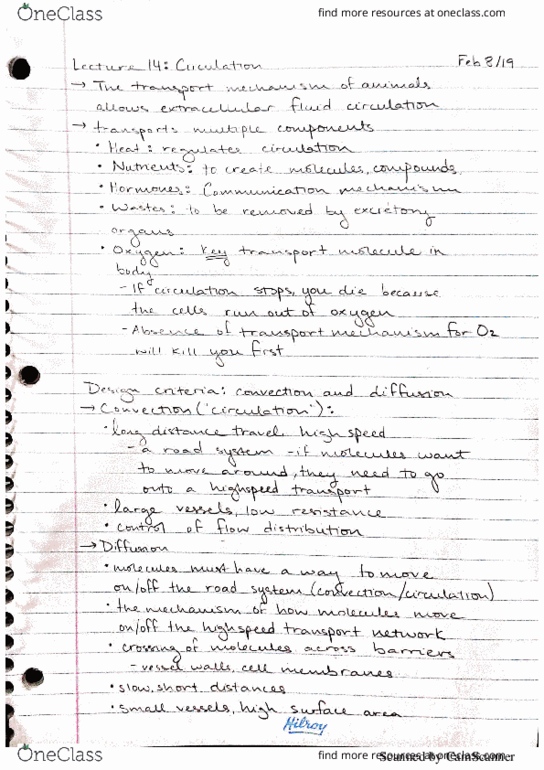 OneClass
find more resources at oneclass.com
Lecture 14: Circulation
Feb 8/19
→ The transport mechanism of animals
allows extracellular fluid circulation
→ transports multiple components
• Heat: regulates circulation
• Nutrients: to create molecules, compounds
• Hormones: Communication mechanism
• Wastes: to be removed by excretory
organs
• Oxygen: Key transport molecule in
body
- If circulation stops, you die because
the cells run out of oxygen
- Absence of transport mechanism for O2
will kill you first
Design criteria: convection and diffusion
→ Convection ('circulation'):
• long distance travel, high speed
- a road system - if molecules want
to move around, they need to go
onto a highspeed transport
• large vessels, low resistance
• control of flow distribution
→ Diffusion
• molecules must have a way to move
on/off the road system (convection/circulation)
• the mechanism of how molecules move
on/off the highspeed transport network
• crossing of molecules across barriers
- vessel walls, cell membranes
• slow, short distances
• small vessels, high surface area
Hilroy
OneClass
find more resources at oneclass.com
Scanned by CamScanner